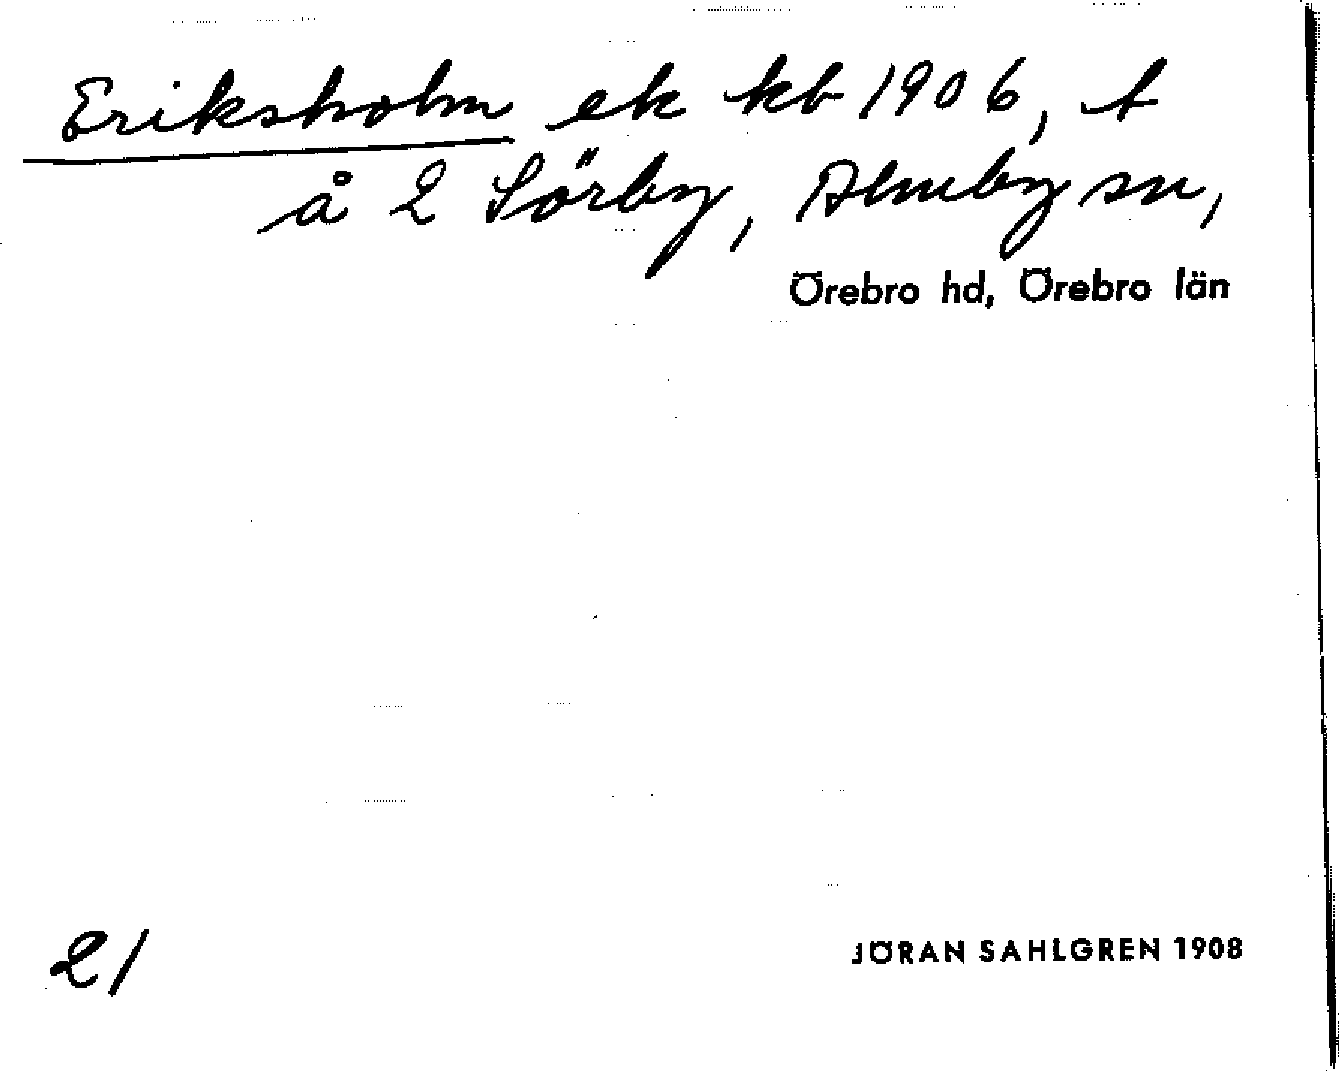 Eriksholm ek kb 1906, t
å 2 Sörby, Almby sn,
Örebro hd, Örebro län
21
JÖRAN SAHLGREN 1908